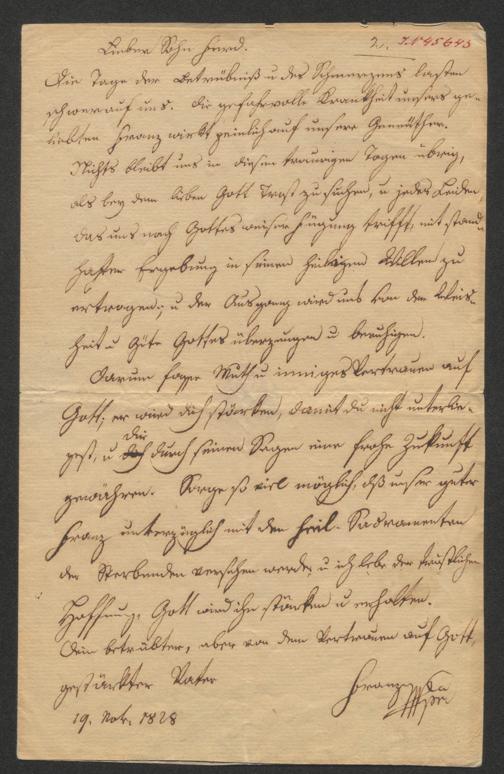 Lieber Sohn Ferd.
2. I.N. 45645
Die Tage der Betrübniß u des Schmerzens lasten
schwer auf uns. Die gefahrvolle Krankheit unsers ge-
liebten Franz wirkt peinlich auf unsere Gemüther.
Nichts bleibt uns in diesen traurigen Tagen übrig,
als bey dem lieben Gott Trost zu suchen, u jedes Leiden,
das uns nach Gottes weiser Fügung trifft, mit stand-
hafter Ergebung in seinen heiligen Willen zu
ertragen; u der Ausgang wird uns von der Weis-
heit u Güte Gottes überzeugen u beruhigen.
Darum fasse Muth u inniges Vertrauen auf
Gott; er wird dich stärken, damit du nicht unterlie-
gest, u dir durch seinen Segen eine frohe Zukunft
gewähren. Sorge so viel möglich, daß unser guter
Franz unverzüglich mit den heil. Sacramenten
der Sterbenden versehen werde, u ich lebe der tröstlichen
Hoffnung, Gott wird ihn stärken u erhalten.
Dein betrübter, aber von dem Vertrauen auf Gott
gestärkter Vater
Franz
19. Nov. 1828